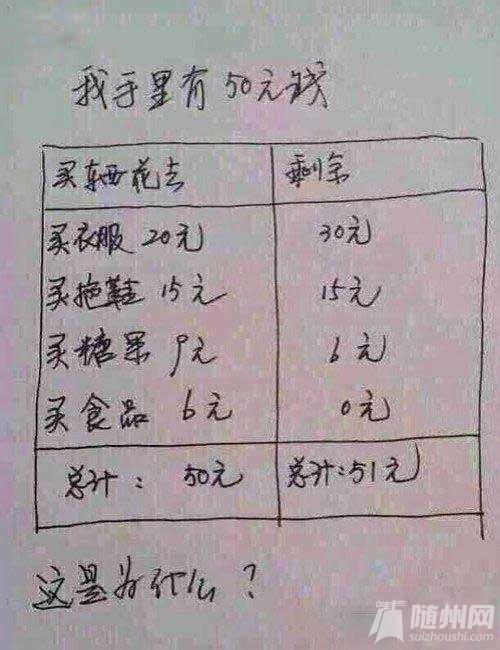 我手里有50元钱
买东西花去 剩余
买衣服 20元 30元
买拖鞋 15元 15元
买糖果 9元 6元
买食品 6元 0元
总计: 50元 总计:51元
这是为什么?
随州网
suizhoushi.com